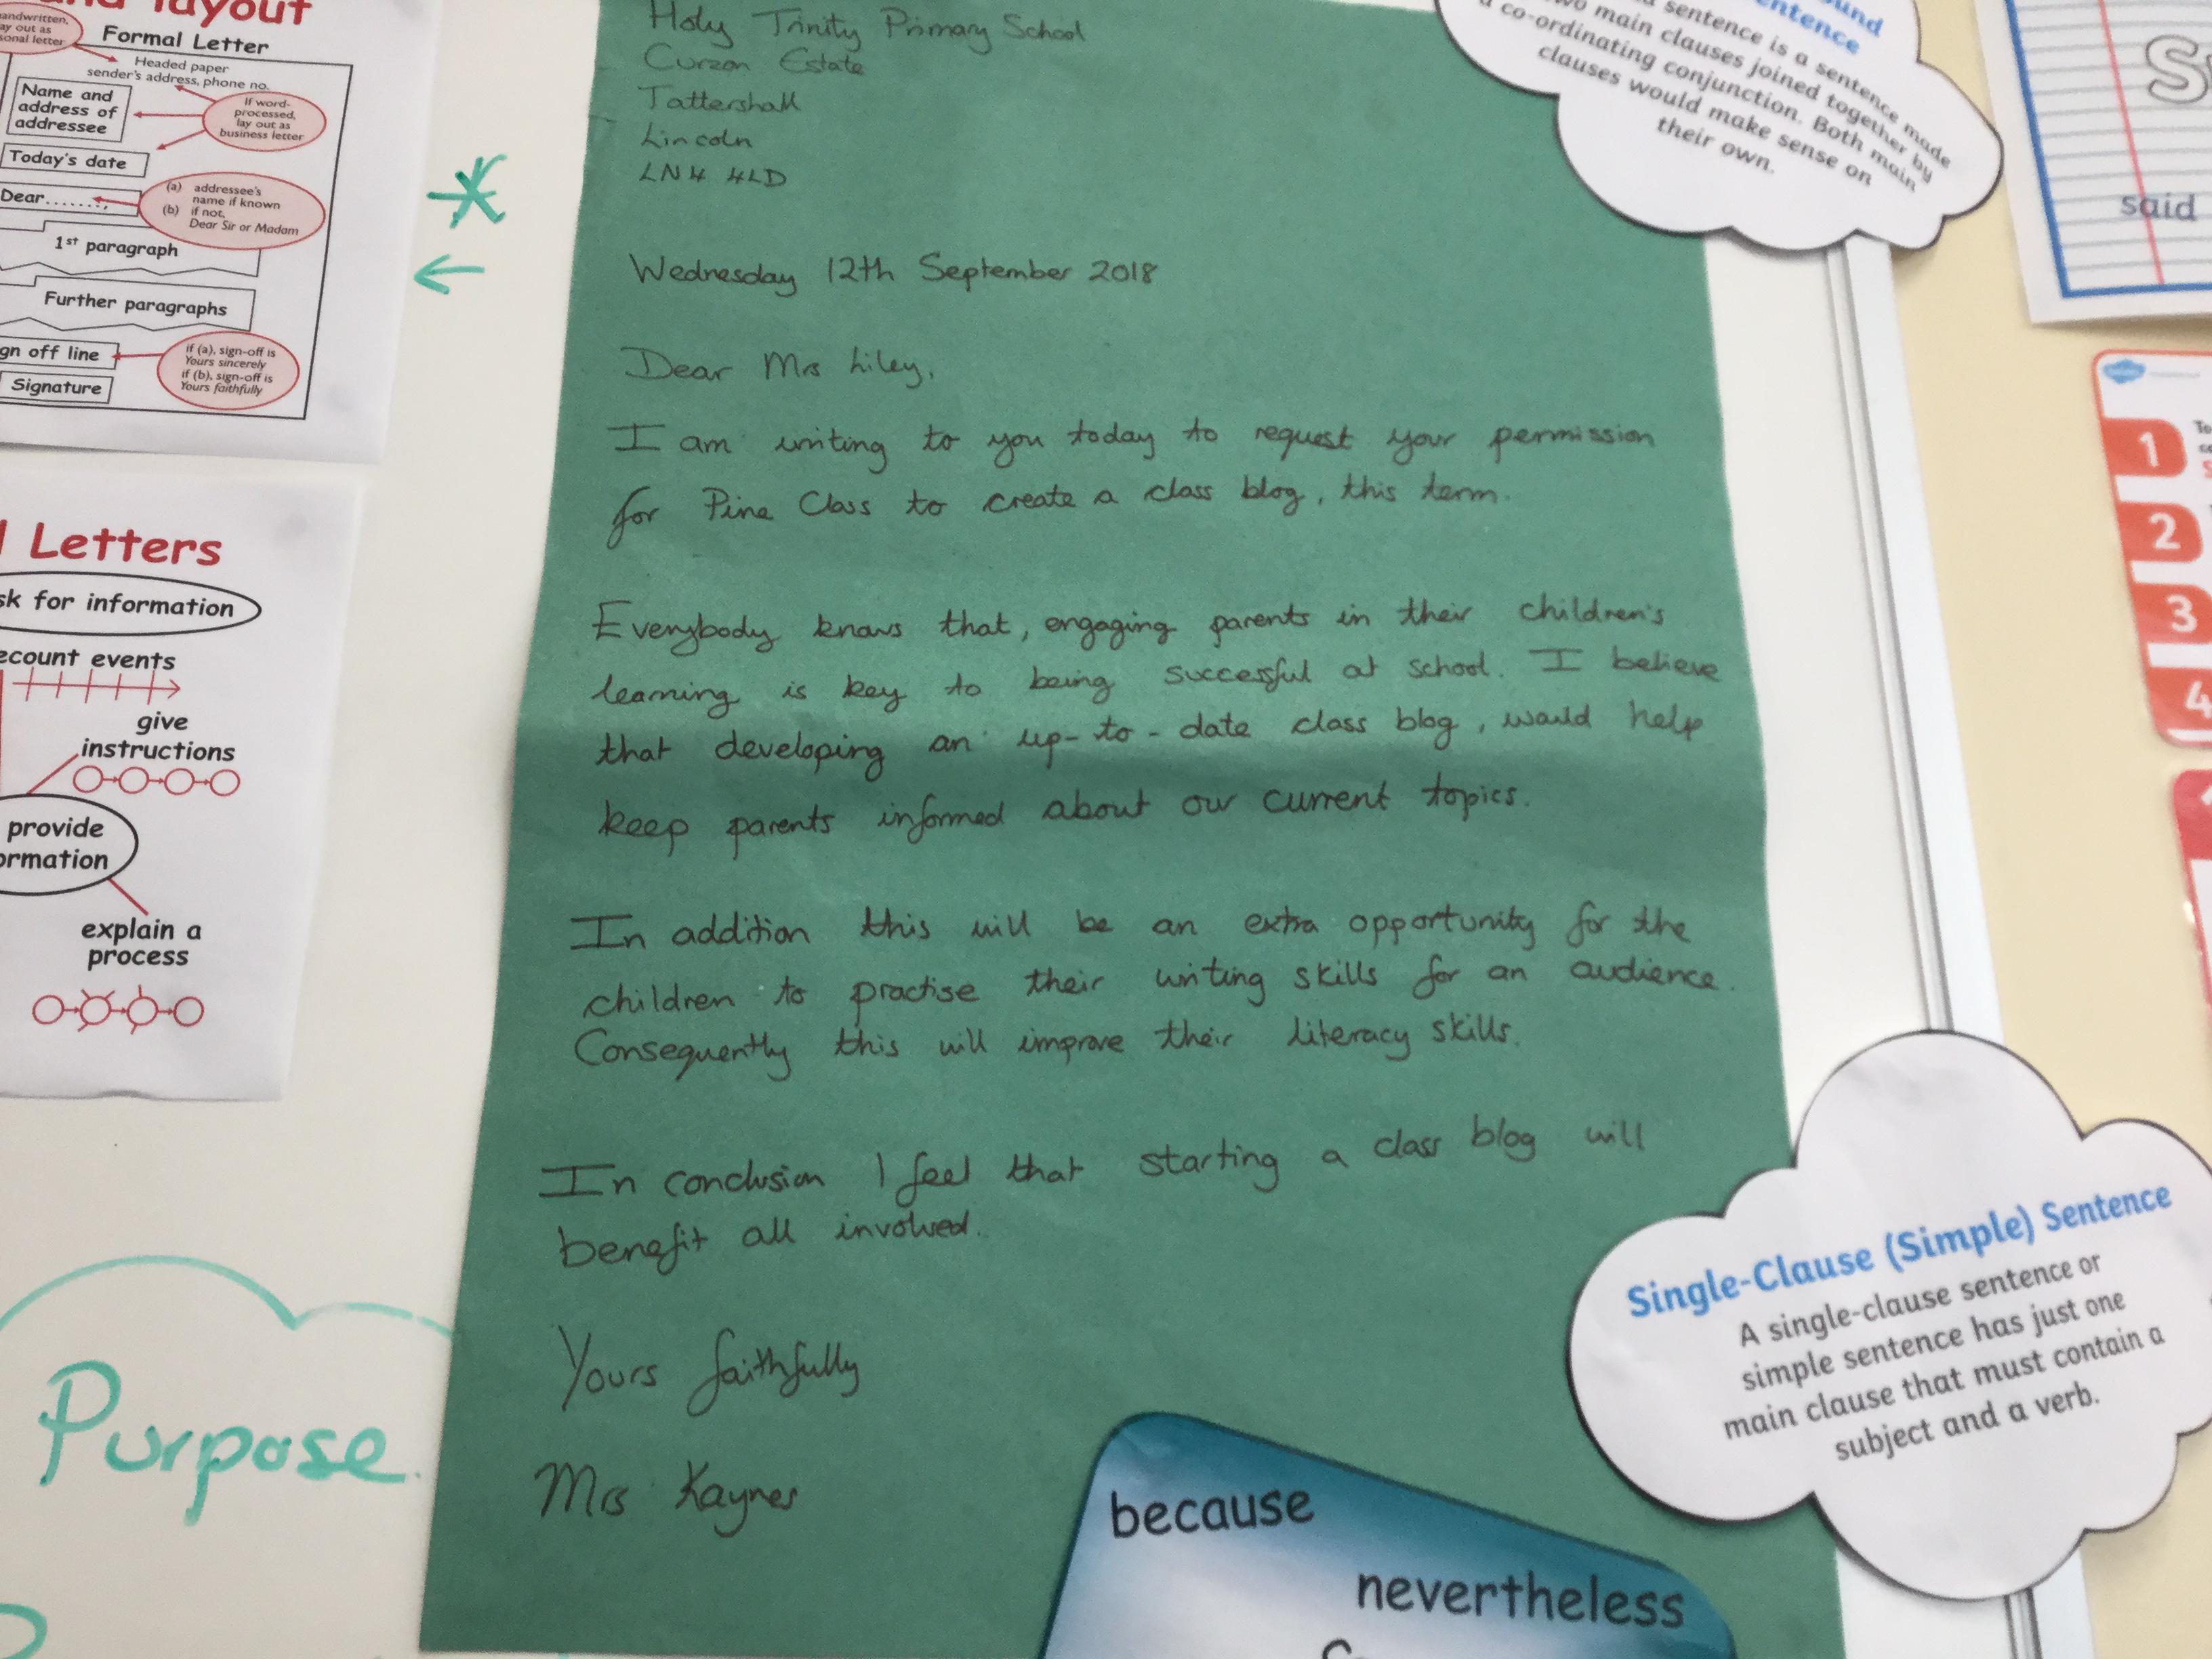 layout
Formal Letter
Headed paper
sender's address, phone no.
Name and
address of
addressee
If word-
processed,
lay out as
business letter
Today's date
Dear.......,
(a) addressee's
name if known
(b) if not,
Dear Sir or Madam
1st paragraph
Further paragraphs
gn off line
if (a), sign-off is
Yours sincerely
if (b), sign-off is
Yours faithfully
Signature
Letters
sk for information
ecount events
give
instructions
provide
ormation
explain a
process
Purpose.
Holy Trinity Primary School
Curzon Estate
Tattershall
Lincoln
LN4 4LD
Wednesday 12th September 2018
Dear Mrs Liley,
I am writing to you today to request your permission
for Pine Class to create a class blog, this term.
Everybody knows that, engaging parents in their children's
learning is key to being successful at school. I believe
that developing an up-to-date class blog, would help
keep parents informed about our current topics.
In addition this will be an extra opportunity for the
children to practise their writing skills for an audience.
Consequently this will improve their literacy skills.
In conclusion I feel that starting a class blog will
benefit all involved.
Yours faithfully
Mrs Kaynes
because
nevertheless
ound
entence
sentence is a sentence made
wo main clauses joined together by
a co-ordinating conjunction. Both main
clauses would make sense on
their own.
Single-Clause (Simple) Sentence
A single-clause sentence or
simple sentence has just one
main clause that must contain a
subject and a verb.
said
1
2
3
4